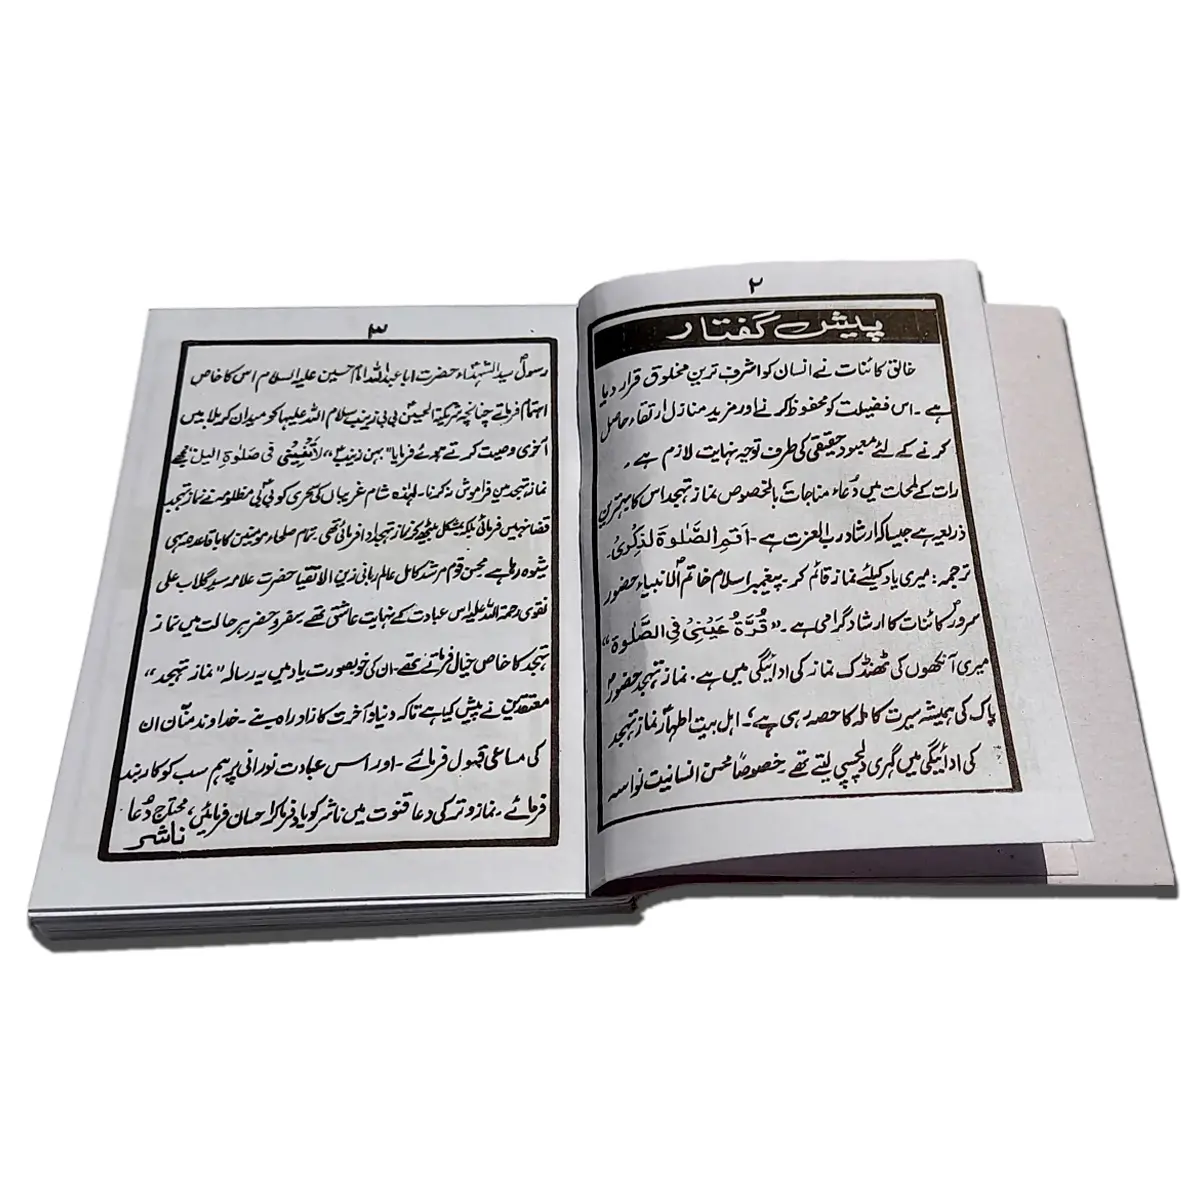 ۲
پیش گفتار
خالق کائنات نے انسان کو اشرف ترین مخلوق قرار دیا
ہے۔ اس فضیلت کو محفوظ کرنے اور مزید منازل ارتقاء حاصل
کرنے کے لئے معبود حقیقی کی طرف توجہ نہایت لازم ہے۔
رات کے لمحات میں دُعاء مناجات بالخصوص نماز تہجد اس کا بہترین
ذریعہ ہے جیسا کہ ارشاد رب العزت ہے۔ اَقِمِ الصَّلٰوةَ لِذِکْرِیْ۔
ترجمہ: میری یاد کیلئے نماز قائم کر۔ پیغمبر اسلام خاتم الانبیاء حضور
سرور کائنات کا ارشاد گرامی ہے۔ "قُرَّةُ عَیْنِیْ فِی الصَّلٰوةِ"
میری آنکھوں کی ٹھنڈک نماز کی ادائیگی میں ہے۔ نماز تہجد حضور
پاک کی ہمیشہ سیرت کاملہ کا حصہ رہی ہے؛ اہل بیت اطہار نماز تہجد
کی ادائیگی میں گہری دلچسپی لیتے تھے۔ خصوصاً محسن انسانیت نواسہ
۳
رسول سید الشہداء حضرت ابا عبداللہ امام حسین علیہ السلام اس کا خاص
اہتمام فرماتے چنانچہ شریکۃ الحسین بی بی زینب سلام اللہ علیہا کو میدان کربلا میں
آخری وصیت کرتے ہوئے فرمایا "بہن زینب" لاتَنْسِیْنِی فِی صَلٰوةِ الیل" مجھے
نماز تہجد میں فراموش نہ کرنا۔ لہٰذہ شام غریباں کی سحری کو بی بی مظلومہ نے نماز تہجد
قضا نہیں فرمائی بلکہ بمشکل بیٹھ کر نماز تہجد ادا فرمائی تھی۔ تمام صلحاء مومنین کا باقاعدہ یہی
شیوہ رہا ہے محسن قوم مرشد کامل عالم ربانی زین الاتقیا حضرت علامہ سید گلاب علی
نقوی رحمۃ اللہ علیہ اس عبادت کے نہایت عاشق تھے۔ سفر و حضر ہر حالت میں نماز
تہجد کا خاص خیال فرماتے تھے۔ ان کی خوبصورت یاد میں یہ رسالہ "نماز تہجد"
معتقدین نے پیش کیا ہے تاکہ دنیا و آخرت کا زاد راہ بنے۔ خداوند منّان ان
کی مساعی قبول فرمائے۔ اور اس عبادت نورانی پر ہم سب کو کاربند
فرمائے۔ نماز وتر کی دعا قنوت میں ناشر کو یاد فرما کر احسان فرمائیں، محتاج دُعا
ناشر